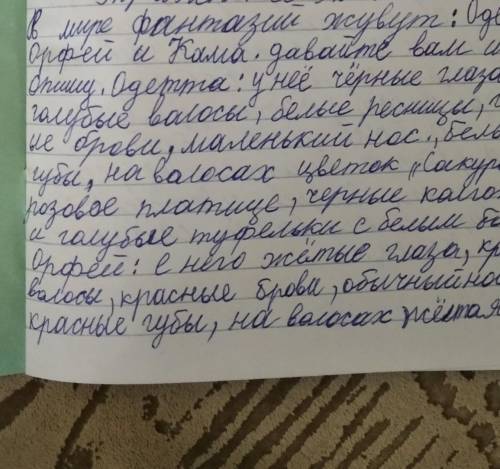 В мире фантазий жувут: Оде
Орфей и Кама. давайте вам и
опишу. Одетта: у неё чёрные глаза
голубые волосы, белые ресницы,
ие брови, маленький нос, бел
губы, на волосах цветок "Сакур
розовое платице, черные калго
и голубые туфельки с белим ба
Орфей: е него жётые глаза, кр
волосы, красные брови, обычный но
красные губы, на волосах жёлтая